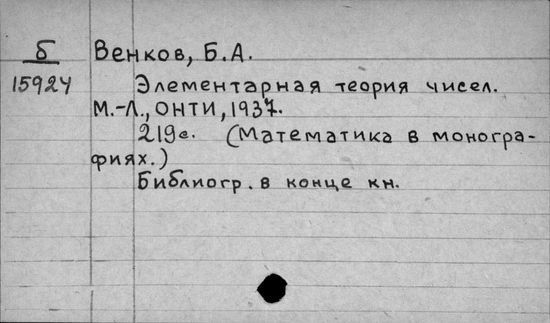 Б Венков, Б.А.
15924 Элементарная теория чисел.
М.-Л., ОНТИ, 1937.
219с. (Математика в моногра-
фиях.)
Библиогр. в конце кн.